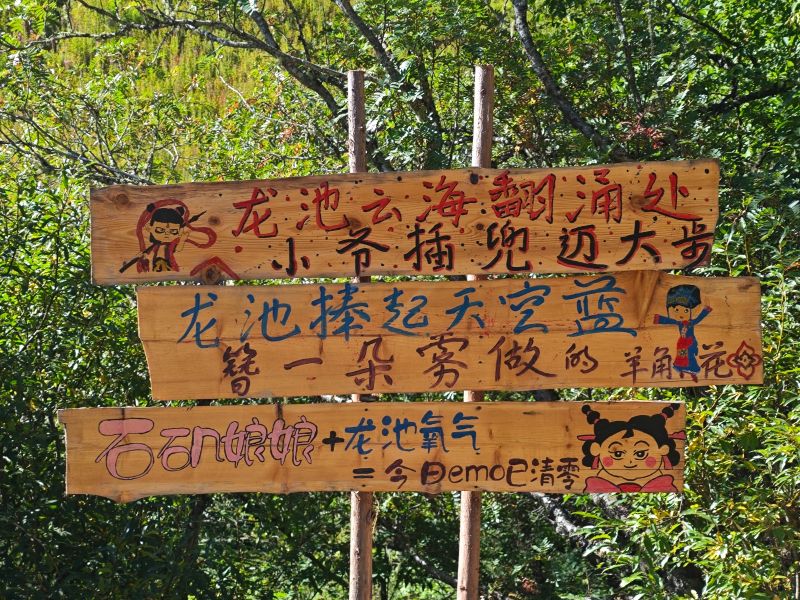 龙池云海翻涌处
小爷插兜迈大步
龙池捧起天空蓝
簪一朵雾做的羊角花
石矶娘娘+龙池氧气
=今日emo已清零